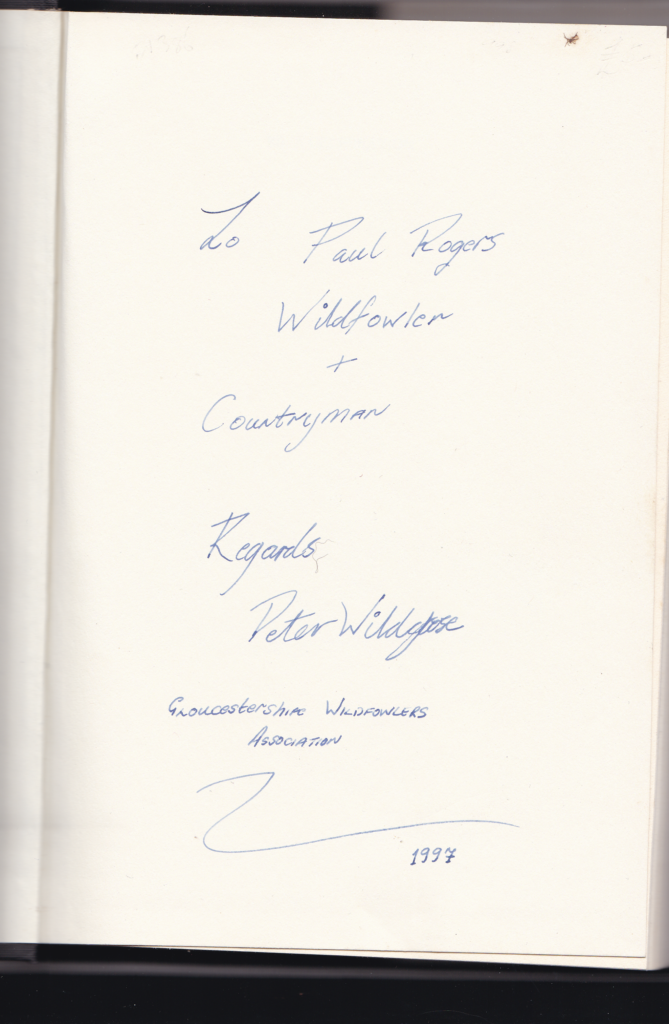 To Paul Rogers
Wildfowler
+
Countryman
Regards
Peter Wildgoose
Gloucestershire Wildfowlers
Association
1997